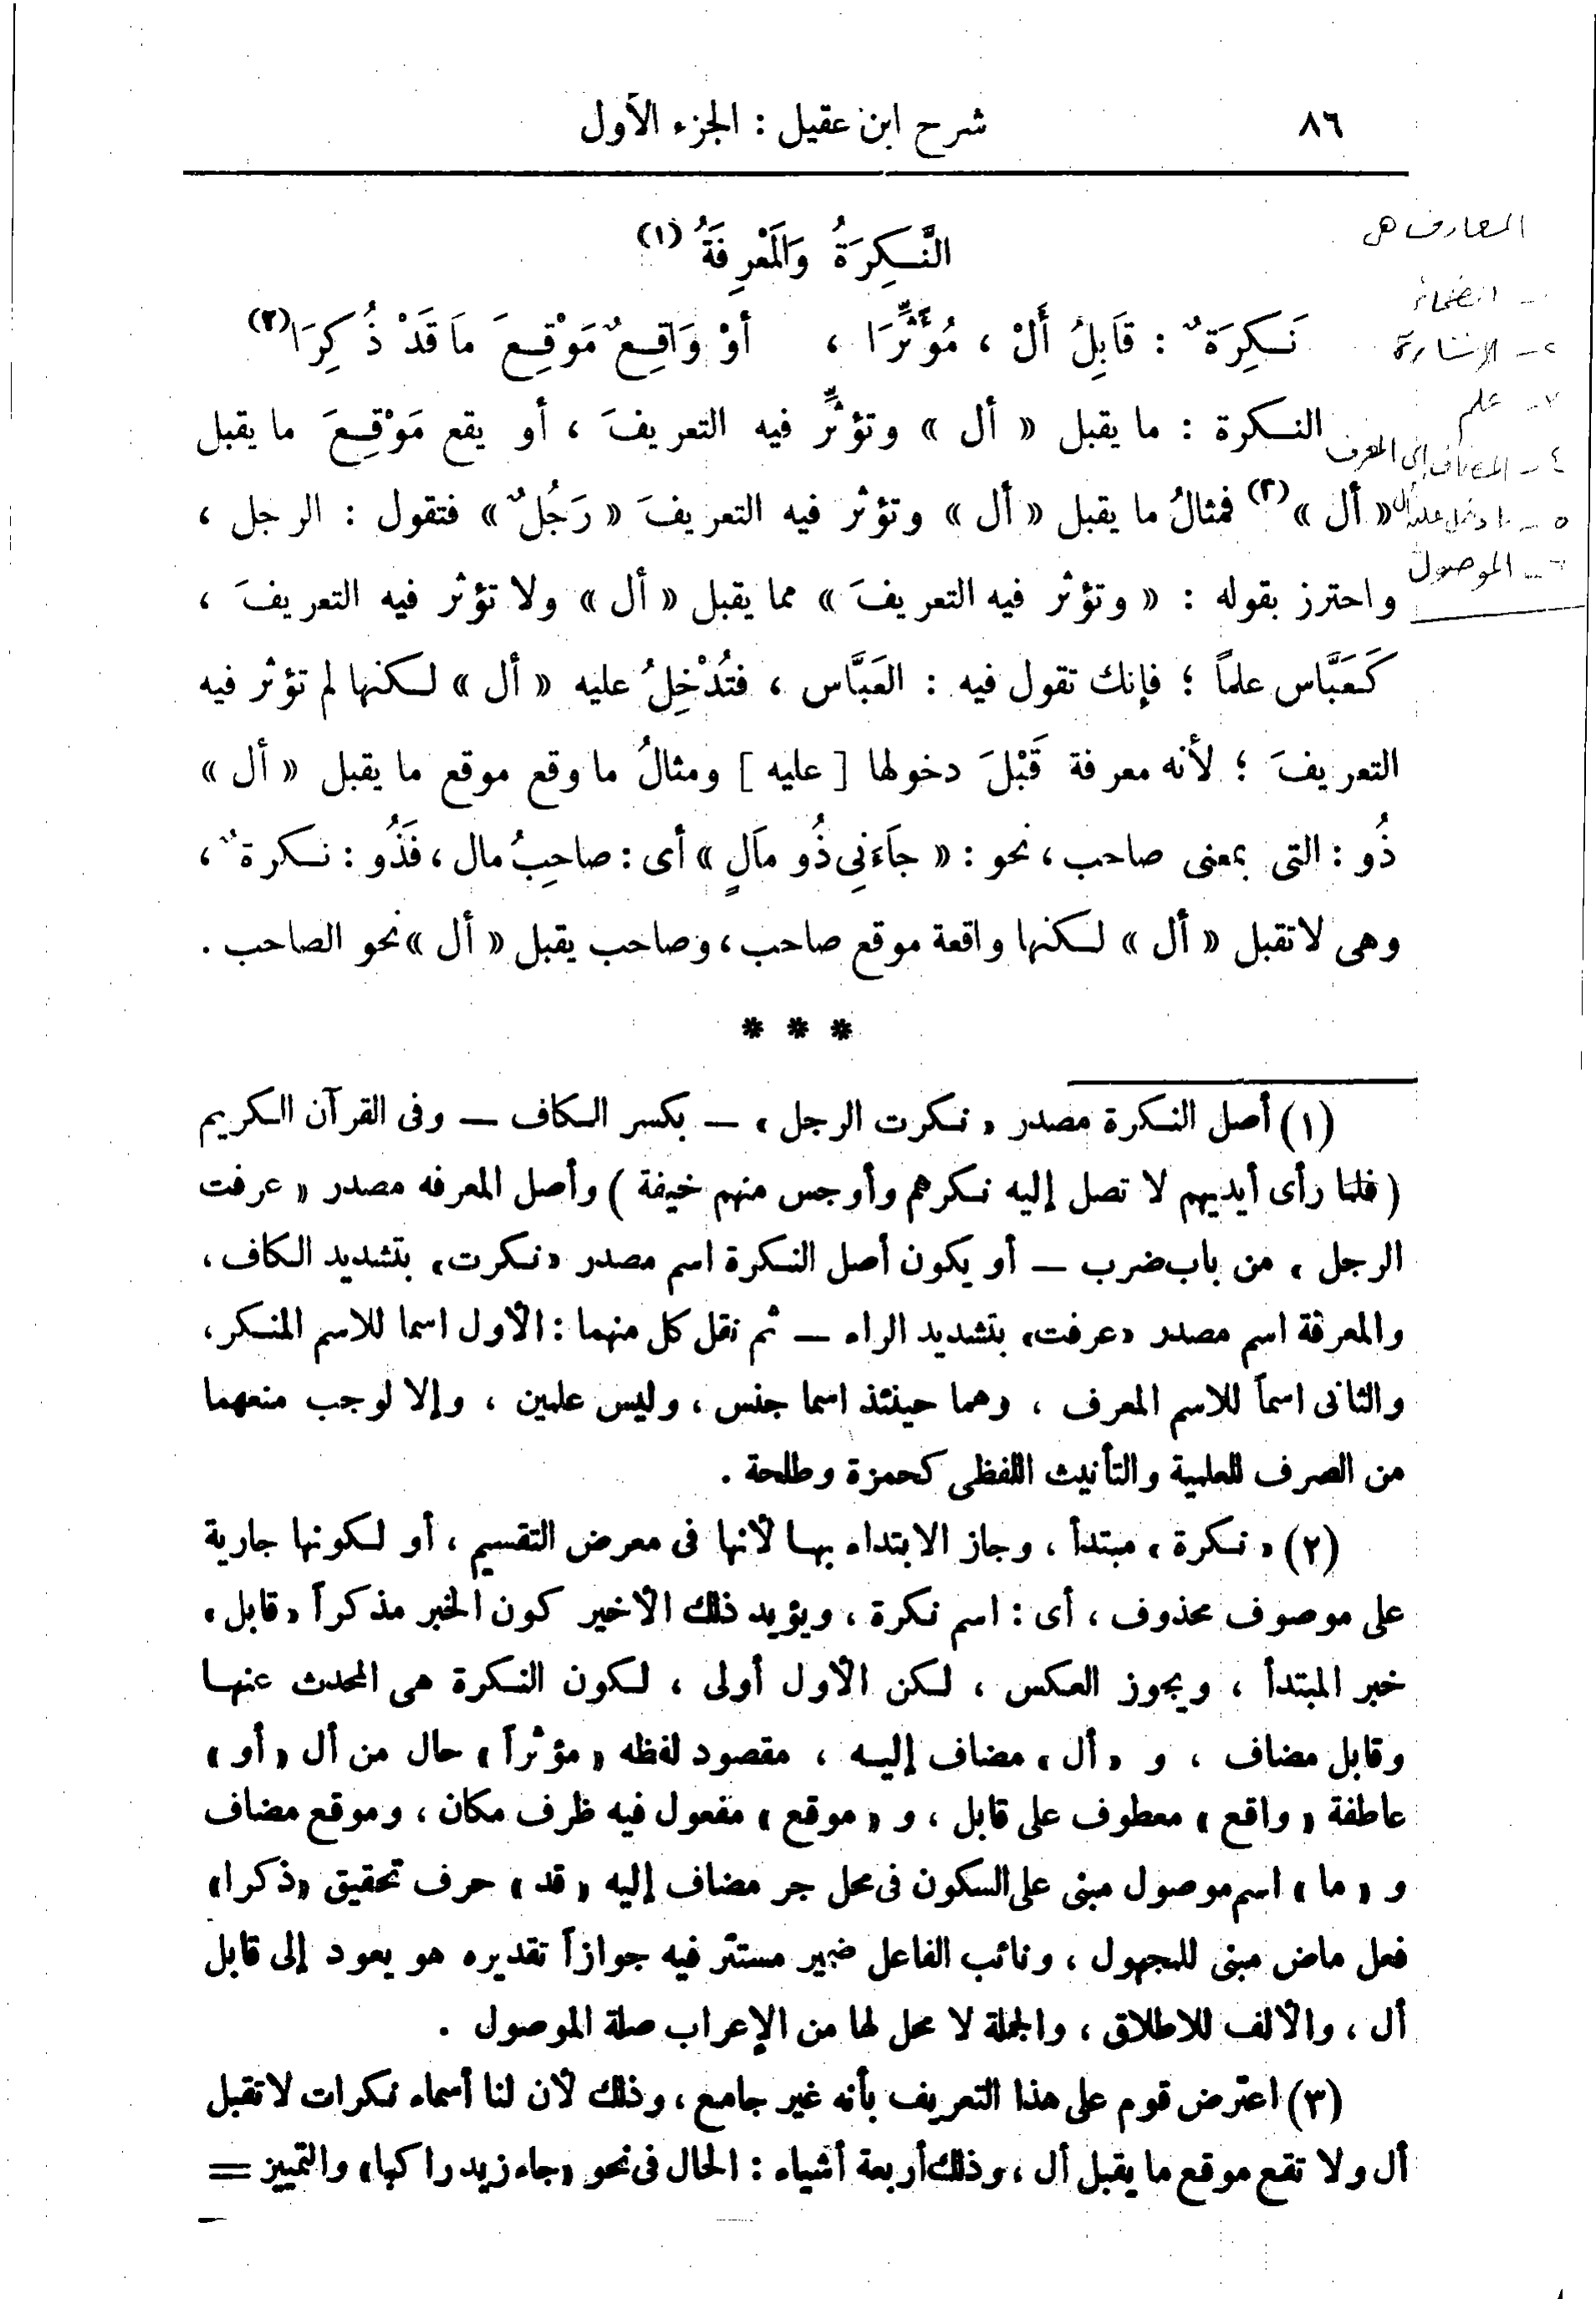 ٨٦
شرح ابن عقيل : الجزء الأول
النَّكِرَةُ وَالْمَعْرِفَةُ (١)
نَكِرَةٌ : قَابِلُ أَلْ ، مُؤَثِّرَا ، أَوْ وَاقِعٌ مَوْقِعَ مَا قَدْ ذُكِرَا (٢)
النكرة : ما يقبل « أل » وتؤثِّر فيه التعريفَ ، أو يقع مَوْقِعَ ما يقبل
« أل » (٣) فمثالُ ما يقبل « أل » وتؤثر فيه التعريفَ « رَجُلٌ » فتقول : الرجل ،
واحترز بقوله : « وتؤثر فيه التعريفَ » مما يقبل « أل » ولا تؤثر فيه التعريفَ ،
كَعَبَّاس علماً ؛ فإنك تقول فيه : العَبَّاس ، فتُدْخِلُ عليه « أل » لكنها لم تؤثر فيه
التعريفَ ؛ لأنه معرفة قَبْلَ دخولها [ عليه ] ومثالُ ما وقع موقع ما يقبل « أل »
ذُو : التى بمعنى صاحب ، نحو : « جَاءَنِى ذُو مَالٍ » أى : صاحِبُ مال ، فَذُو : نكرةٌ ،
وهى لا تقبل « أل » لكنها واقعة موقع صاحب ، وصاحب يقبل « أل » نحو الصاحب .
* * *
(١) أصل النكرة مصدر « نكرت الرجل » — بكسر الكاف — وفى القرآن الكريم
( فلما رأى أيديهم لا تصل إليه نكرهم وأوجس منهم خيفة ) وأصل المعرفه مصدر « عرفت
الرجل » من باب ضرب — أو يكون أصل النكرة اسم مصدر « نكرت » بتشديد الكاف ،
والمعرفة اسم مصدر « عرفت » بتشديد الراء — ثم نقل كل منهما : الأول اسما للاسم المنكر ،
والثانى اسماً للاسم المعرف ، وهما حينئذ اسما جنس ، وليس علمين ، وإلا لوجب منعهما
من الصرف للعلمية والتأنيث اللفظى كحمزة وطلحة .
(٢) « نكرة » مبتدأ ، وجاز الابتداء بها لأنها فى معرض التقسيم ، أو لكونها جارية
على موصوف محذوف ، أى : اسم نكرة ، ويؤيد ذلك الأخير كون الخبر مذكراً « قابل »
خبر المبتدأ ، ويجوز العكس ، لكن الأول أولى ، لكون النكرة هى المحدث عنها
وقابل مضاف ، و « أل » مضاف إليه ، مقصود لفظه « مؤثراً » حال من أل « أو »
عاطفة « واقع » معطوف على قابل ، و « موقع » مفعول فيه ظرف مكان ، وموقع مضاف
و « ما » اسم موصول مبنى على السكون فى محل جر مضاف إليه « قد » حرف تحقيق « ذكرا »
فعل ماض مبنى للمجهول ، ونائب الفاعل ضمير مستتر فيه جوازاً تقديره هو يعود إلى قابل
أل ، والألف للاطلاق ، والجملة لا محل لها من الإعراب صلة الموصول .
(٣) اعترض قوم على هذا التعريف بأنه غير جامع ، وذلك لأن لنا أسماء نكرات لا تقبل
أل ولا تقع موقع ما يقبل أل ، وذلك أربعة أشياء : الحال فى نحو « جاء زيد راكبا » والتمييز =
المعارف هى
- الضمائر
٢- الإشارة
٣- علم
٤- المضاف إلى المعرف
٥- ما دخل عليه أل
٦- الموصول